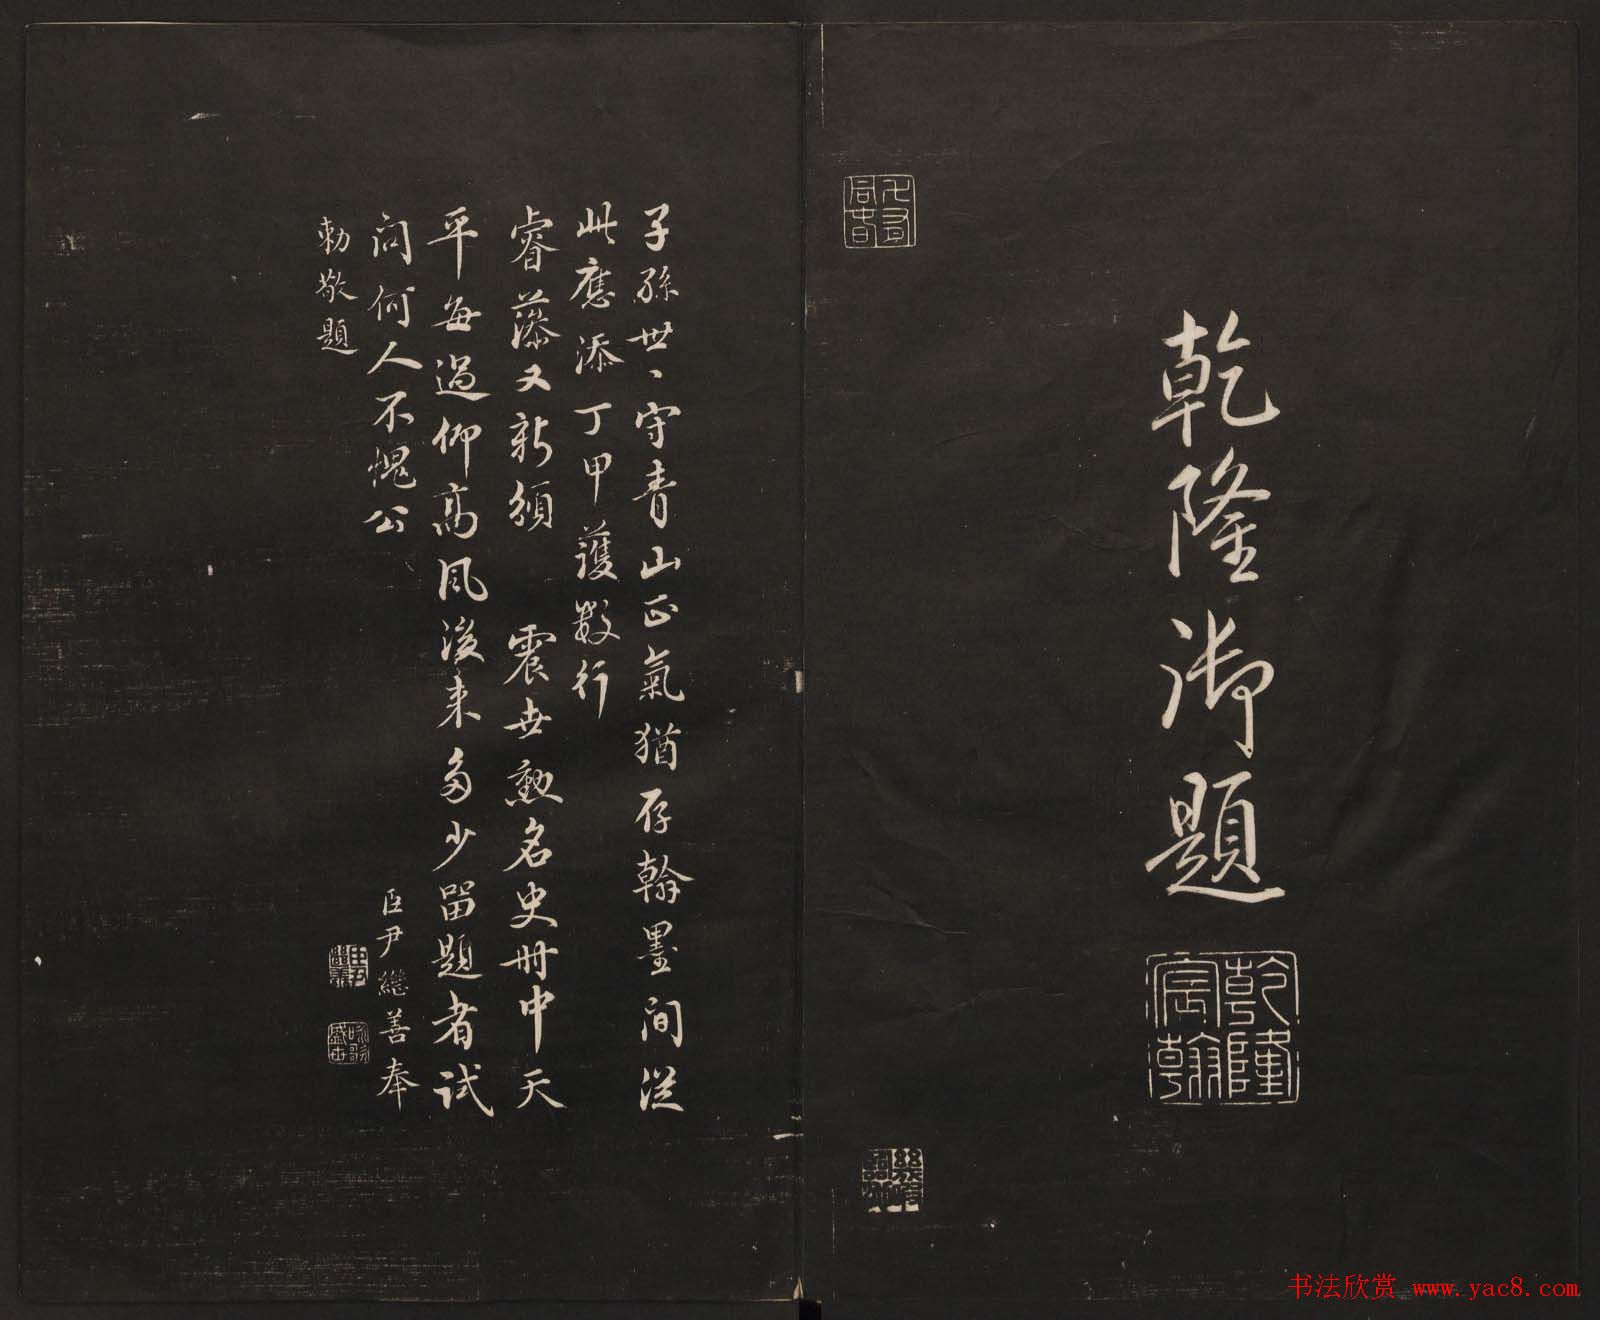 乾隆御題
乾隆宸翰
子孫世〻守青山正氣猶存翰墨間從
此應添丁甲護數行
睿藻又新頒 震世勲名史冊中天
平每過仰高風後来多少留題者試
問何人不愧公
臣尹繼善奉
勅敬題
书法欣赏 www.yac8.com